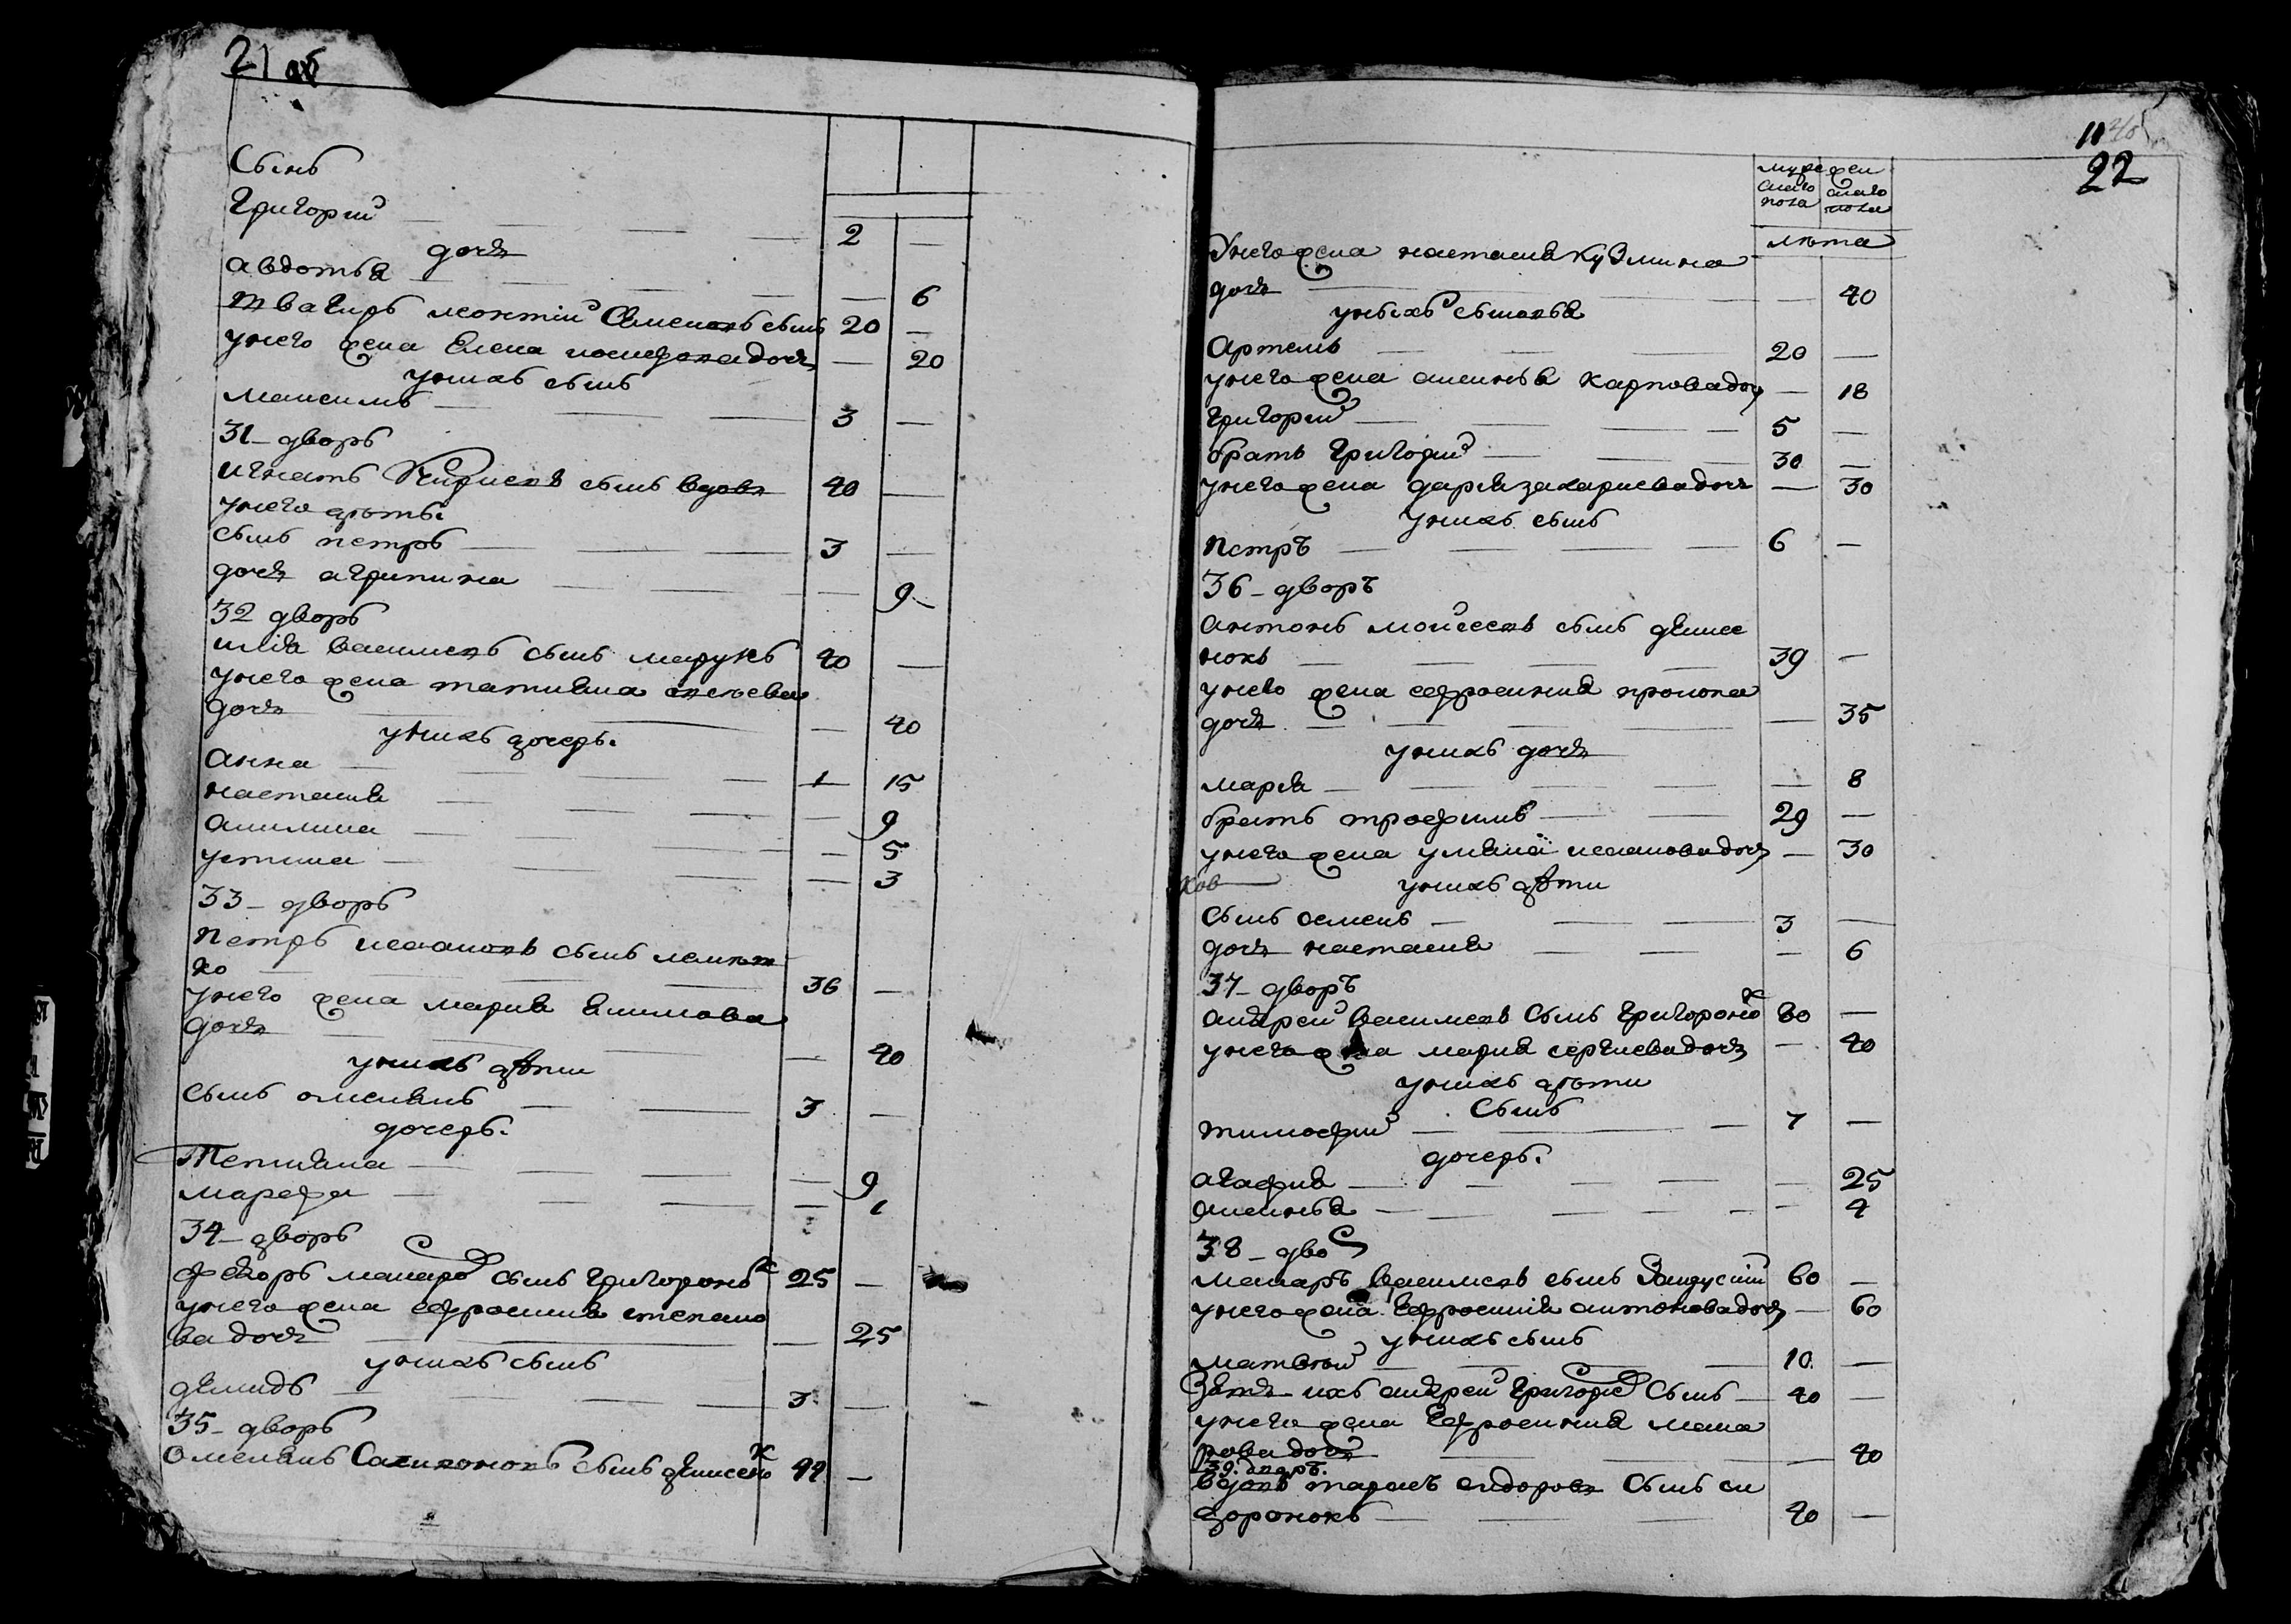 21 об
Сынъ
Григорий — 2 —
дочь
Авдотья — 6
леонтий Семеновъ сынъ 20 —
унего жена Елена дочь — 20
унихъ сынъ
Максимъ — 3 —
31 – дворъ
Игнатъ сынъ вдовъ 40 —
унего дѣти.
сынъ петръ — 3 —
дочь агрипина — 9
32 дворъ
илія василиевъ сынъ марукъ 40 —
унего жена татияна
дочь — 40
унихъ дочерь.
Анна — 15
настасия — 9
Акилина — 5
устина — 3
33 – дворъ
Петръ сынъ
ко — 36 —
унего жена мария Екимова
дочь — 40
унихъ дѣти
сынъ омелянъ — 3 —
дочерь.
Татияна — 9
Марефа — 1
34 – дворъ
Федоръ макаровъ сынъ Григоронокъ 25 —
унего жена ефросиния степано
ва дочь — 25
унихъ сынъ
демидъ — 3 —
35 – дворъ
Омелянъ сынъ денисенокъ 44 —
11
22
мужескаго пола женскаго пола
лѣта
Унего жена настасия кузмина
дочь — 40
унихъ сыновья
Артемъ — 20 —
унего жена аксинья карповадочь — 18
Григорий — 5 —
братъ Григорий — 30 —
унего жена дарья захариевадочь — 30
унихъ сынъ
Петръ — 6 —
36 – дворъ
Антонъ моисеевъ сынъ денисе
нокъ — 39 —
унего жена ефросиния
дочь — 35
унихъ дочь
марья — 8
братъ трофимъ — 29 —
унего жена уляна дочь — 30
ков
унихъ дѣти
сынъ семенъ — 3 —
дочь настасия — 6
37 – дворъ
Андрей василиевъ сынъ Григоронокъ 80 —
унего жена мария сергиевадочь — 40
унихъ дѣти
Сынъ
тимофий — 7 —
дочерь.
агафия — 25
Аксинья — 4
38 – дво
Макаръ василиевъ сынъ 60 —
унего жена Ефросиния антоновадочь — 60
унихъ сынъ
матвѣй — 10 —
Зять ихъ андрей Григориевъ сынъ — 40 —
унего жена Ефросиния мака
рова дочь — 40
39. дворъ.
вдовъ тарасъ сидоровъ сынъ си
доронокъ — 40 —